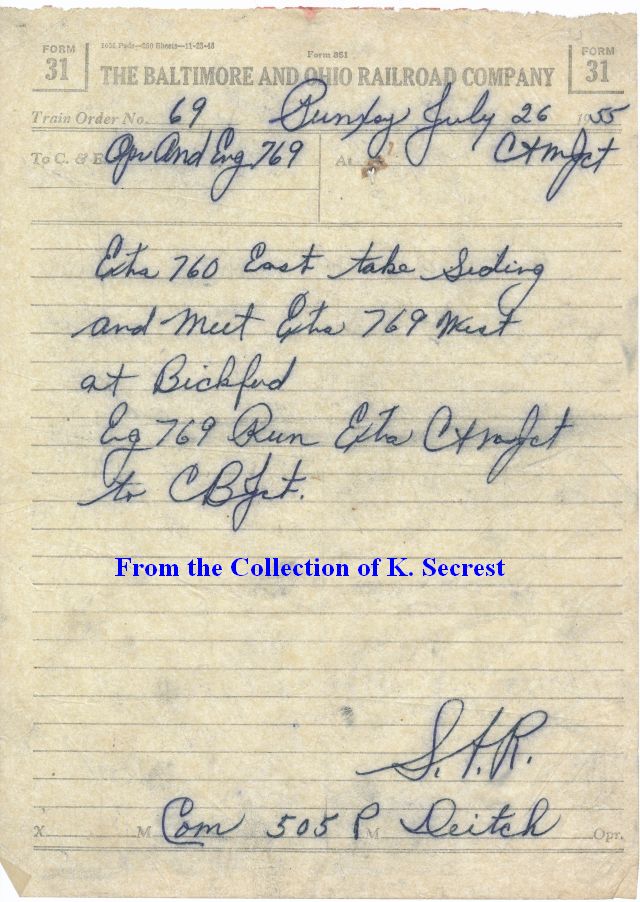 1056 Pads—250 Sheets—11-23-48
Form 851
FORM 31 THE BALTIMORE AND OHIO RAILROAD COMPANY FORM 31
Train Order No. 69 Punxsy July 26 1955
To C. & E. Opr And Eng 769 At C&M Jct
Extra 760 East take Siding
and Meet Extra 769 West
at Bickford
Eng 769 Run Extra C&M Jct
to CB Jct.
From the Collection of K. Secrest
X M Com 505 P M Deitch Opr.